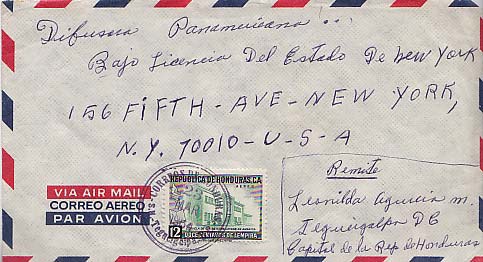 Difusora Panamericana
Bajo Licencia Del Estado De New York
156 FIFTH-AVE-NEW YORK,
N.Y. 70010-U-S-A
Remite
Leonilda M.
Tegucigalpa DC
Capital de la Rep de Honduras
VIA AIR MAIL
CORREO AEREO
PAR AVION
CORREOS DE
REPUBLICA DE HONDURAS, C.A.
AEREO
12
DOCE CENTAVOS DE LEMPIRA